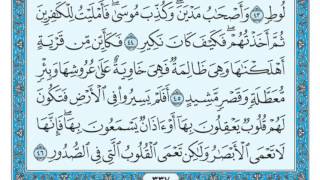 لُوطٍ ٤٣ وَأَصْحَٰبُ مَدْيَنَ ۖ وَكُذِّبَ مُوسَىٰ فَأَمْلَيْتُ لِلْكَٰفِرِينَ
ثُمَّ أَخَذْتُهُمْ ۖ فَكَيْفَ كَانَ نَكِيرِ ٤٤ فَكَأَيِّن مِّن قَرْيَةٍ
أَهْلَكْنَٰهَا وَهِىَ ظَالِمَةٌ فَهِىَ خَاوِيَةٌ عَلَىٰ عُرُوشِهَا وَبِئْرٍ
مُّعَطَّلَةٍ وَقَصْرٍ مَّشِيدٍ ٤٥ أَفَلَمْ يَسِيرُوا۟ فِى ٱلْأَرْضِ فَتَكُونَ
لَهُمْ قُلُوبٌ يَعْقِلُونَ بِهَآ أَوْ ءَاذَانٌ يَسْمَعُونَ بِهَا ۖ فَإِنَّهَا
لَا تَعْمَى ٱلْأَبْصَٰرُ وَلَٰكِن تَعْمَى ٱلْقُلُوبُ ٱلَّتِى فِى ٱلصُّدُورِ ٤٦
٣٣٧